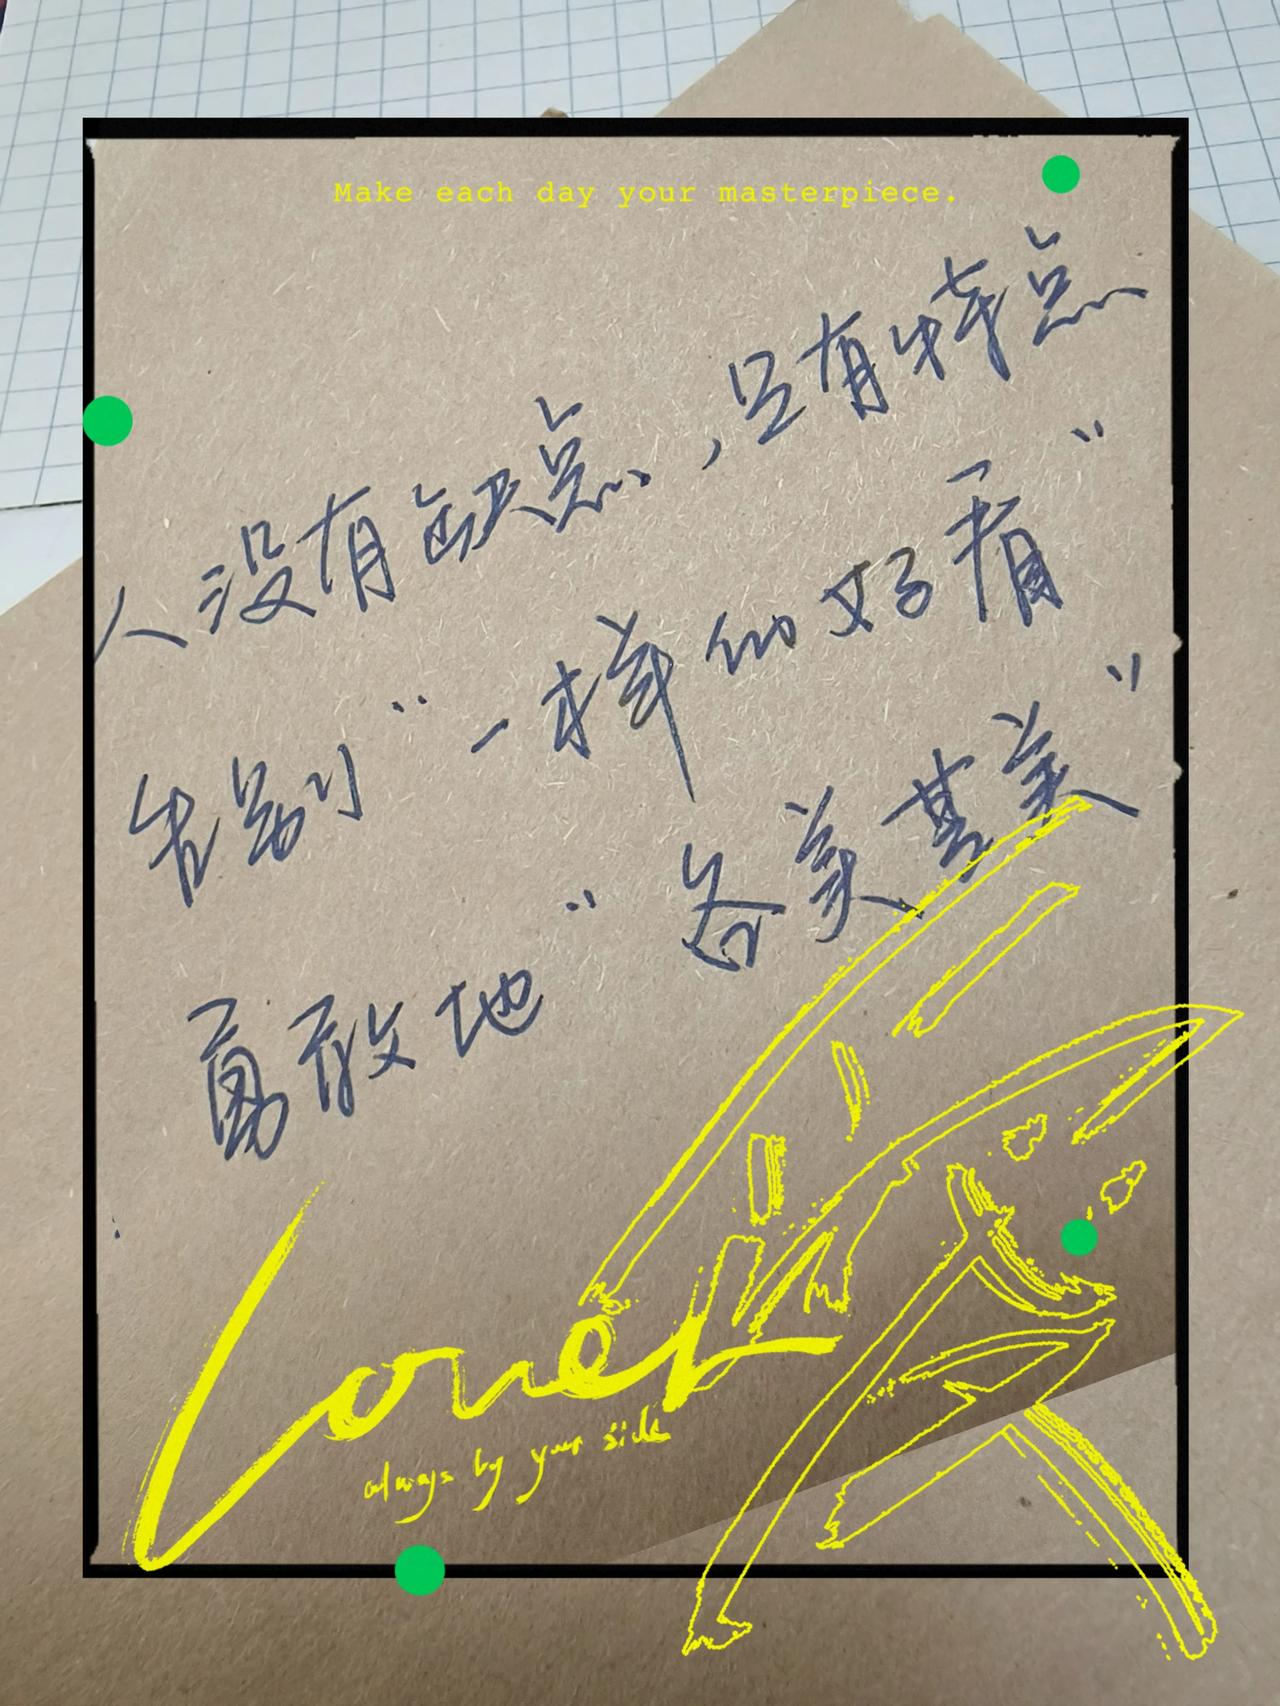 Make each day your masterpiece.
人没有缺点,只有特点
告别“一样的好看”
勇敢地“各美其美”
Lover
always by your side